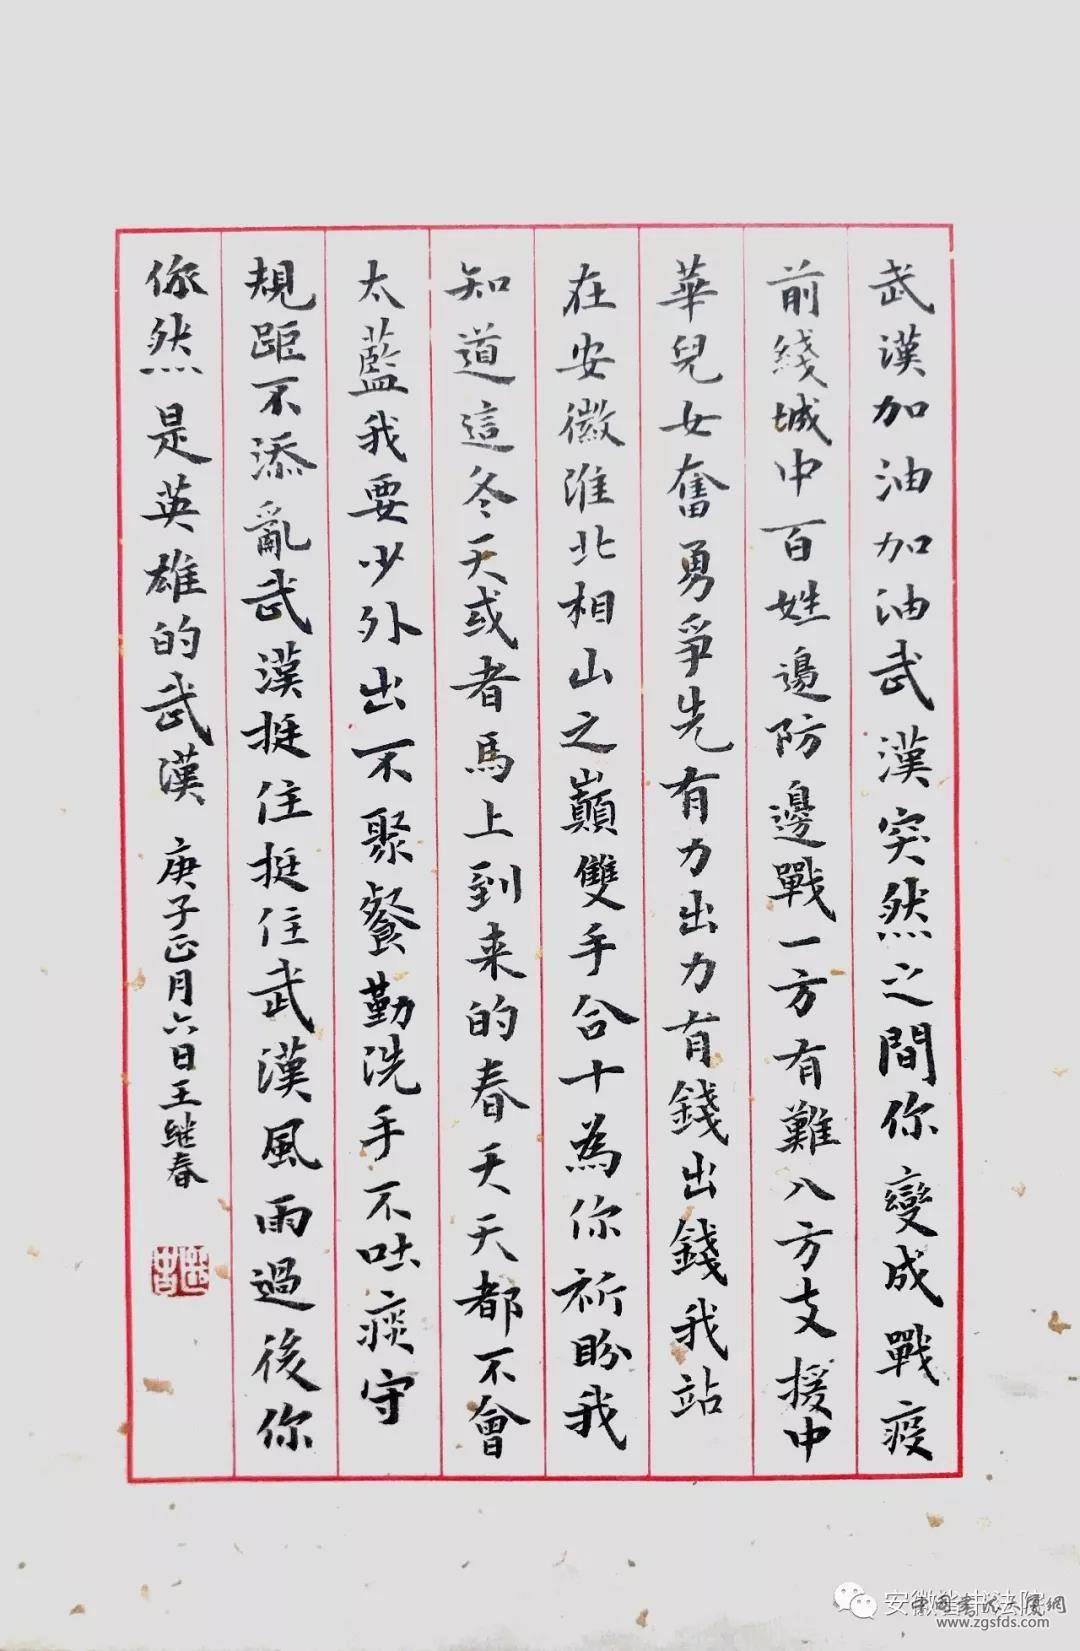 武漢加油加油武漢突然之間你變成戰疫
前綫城中百姓邊防邊戰一方有難八方支援中
華兒女奮勇爭先有力出力有錢出錢我站
在安徽淮北相山之巔雙手合十為你祈盼我
知道這冬天或者馬上到来的春天天都不會
太藍我要少外出不聚餐勤洗手不吐痰守
規距不添亂武漢挺住挺住武漢風雨過後你
依然是英雄的武漢
庚子正月六日王继春
www.zgsfds.com